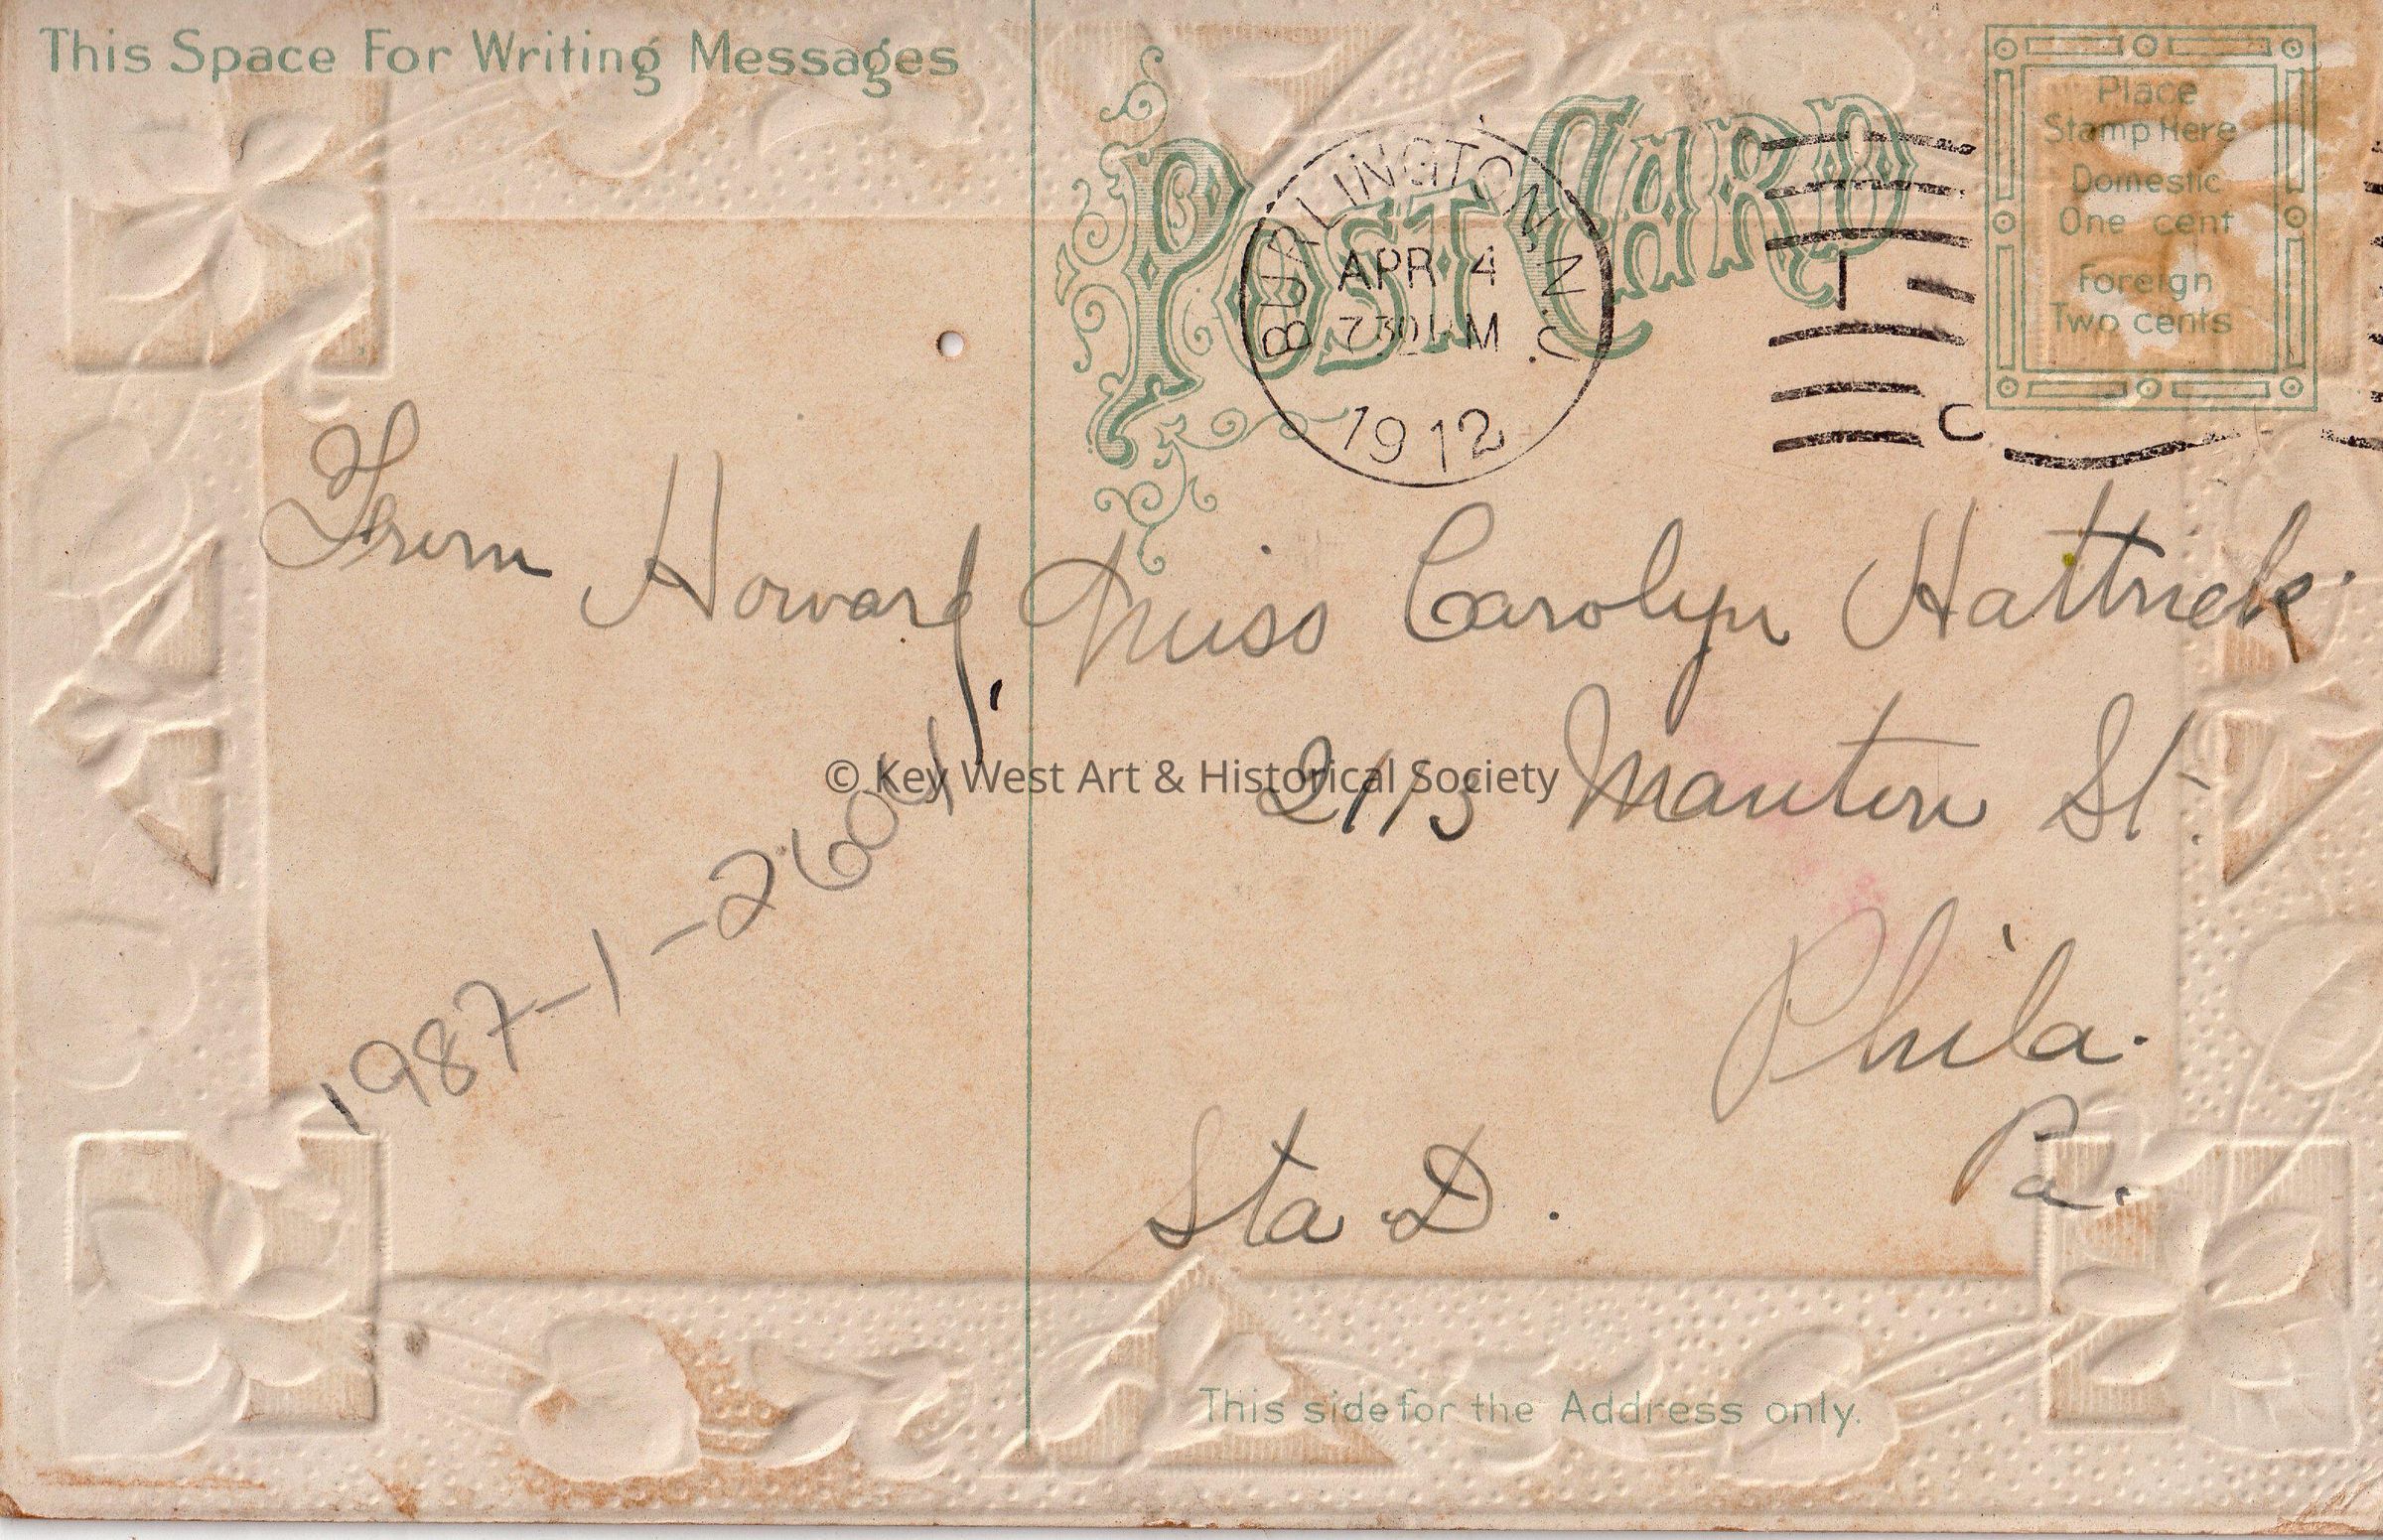 This Space For Writing Messages
POST CARD
Place
Stamp Here
Domestic
One cent
Foreign
Two cents
BURLINGTON, N.C.
APR 4
730 M
1912
From Howard,
Miss Carolyn Hattrick.
2113 Manton St.
Phila.
Pa.
Sta. D.
1987-1-2604
© Key West Art & Historical Society
This side for the Address only.